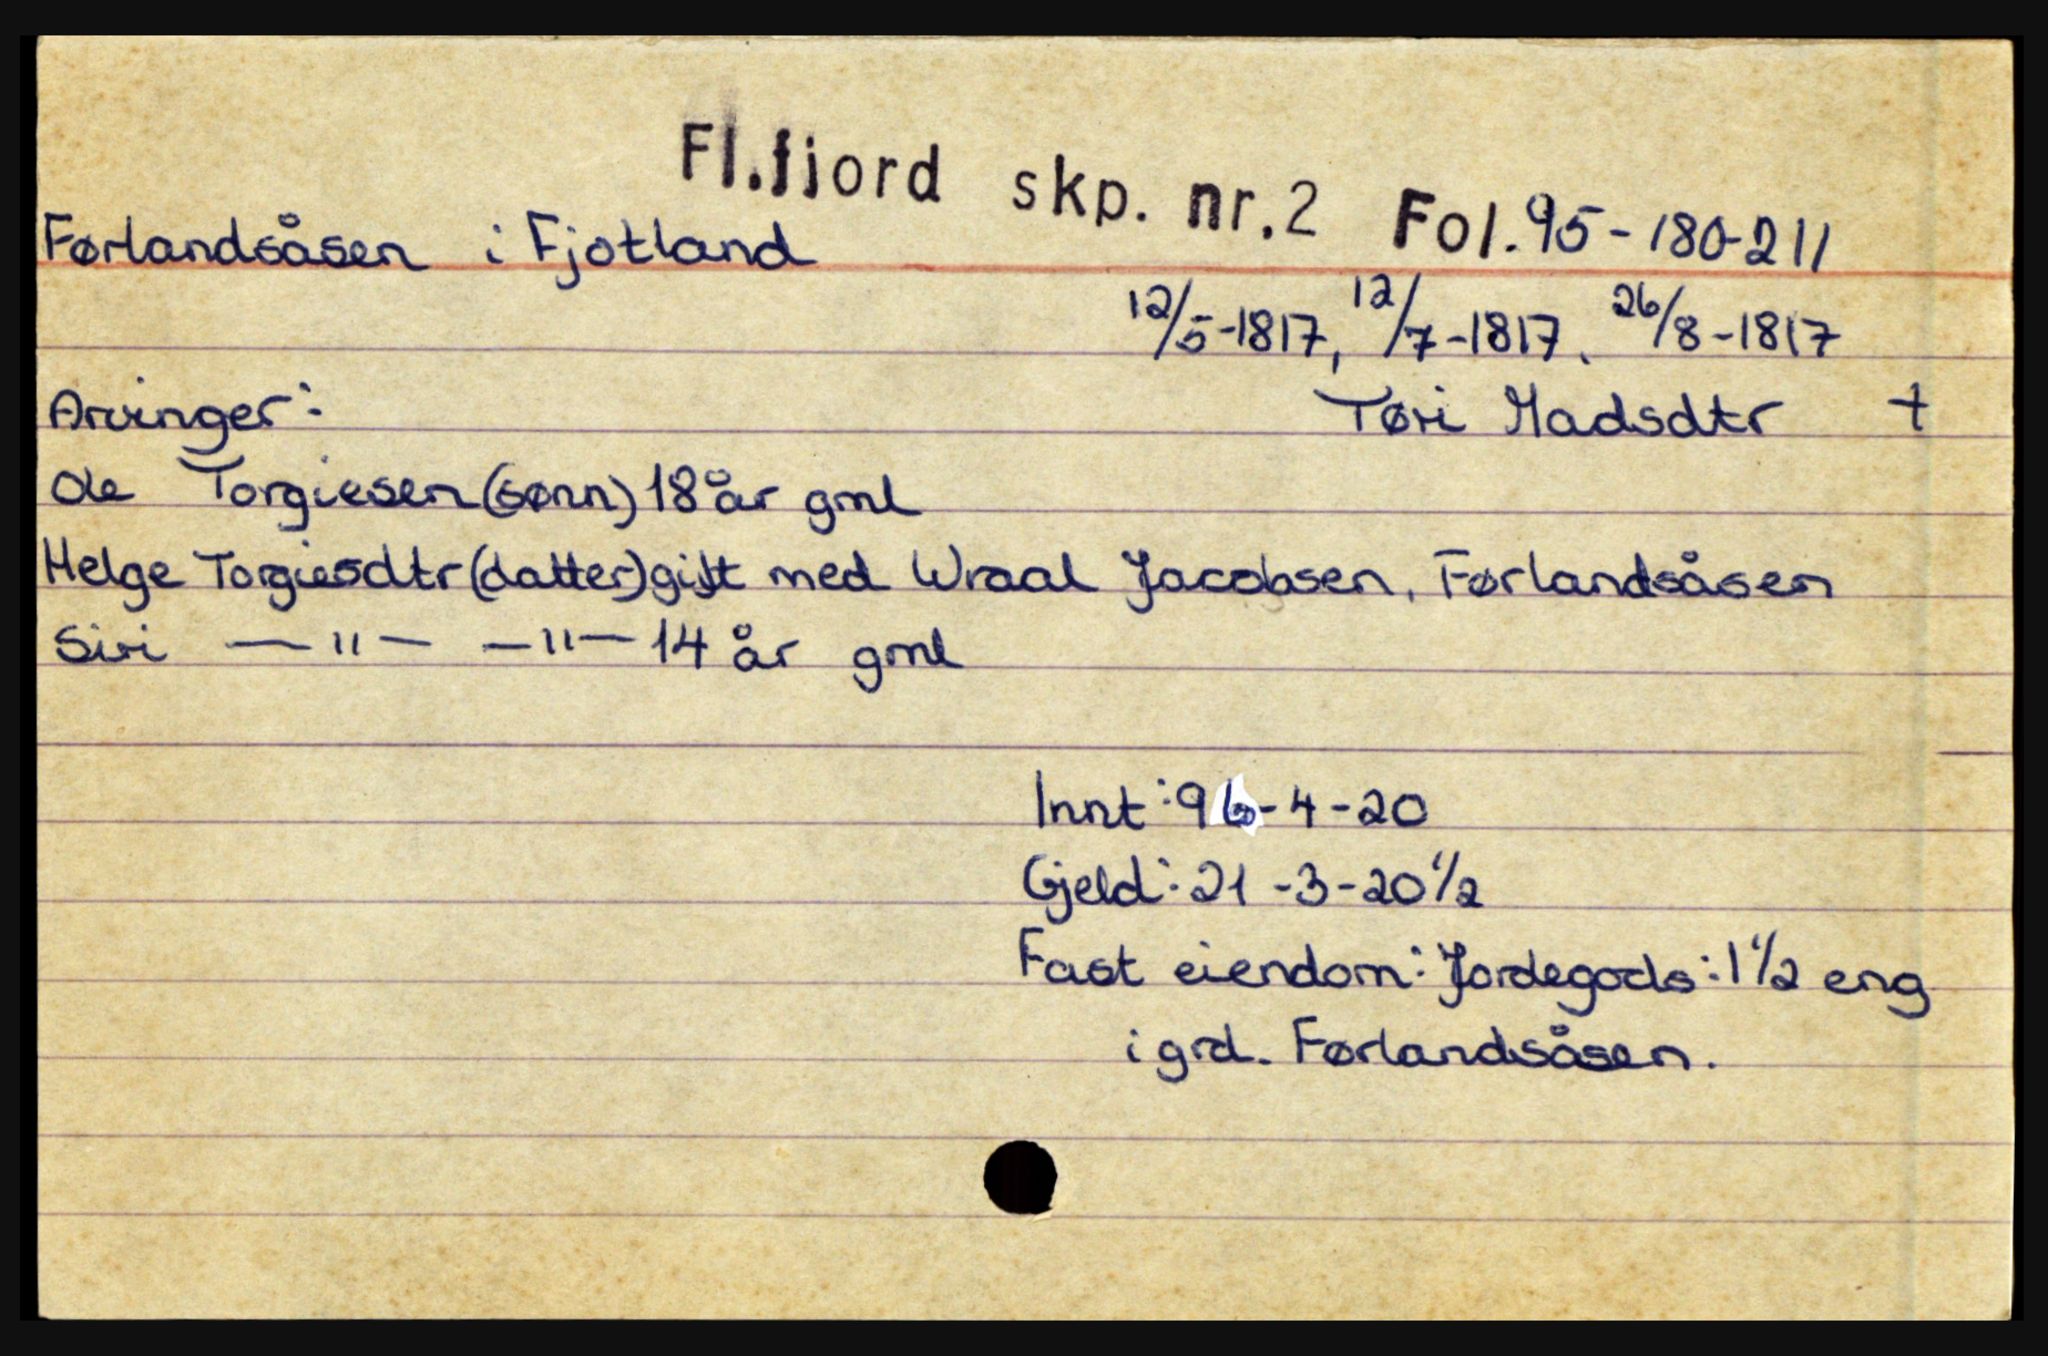 Fl.fjord skp. nr.2 Fol.95-180-211
Førlandsåsen i Fjotland
12/5-1817, 12/7-1817. 26/8-1817
Arvinger: Tøri Madsdtr +
Ole Torgiesen (sønn) 18 år gml
Helge Torgiesdtr (datter) gift med Wraal Jacobsen, Førlandsåsen
Siri —"— —"— 14 år gml
Innt: 96-4-20
Gjeld: 21-3-20 1/2
Fast eiendom: Jordegods: 1 1/2 eng
i grd. Førlandsåsen.